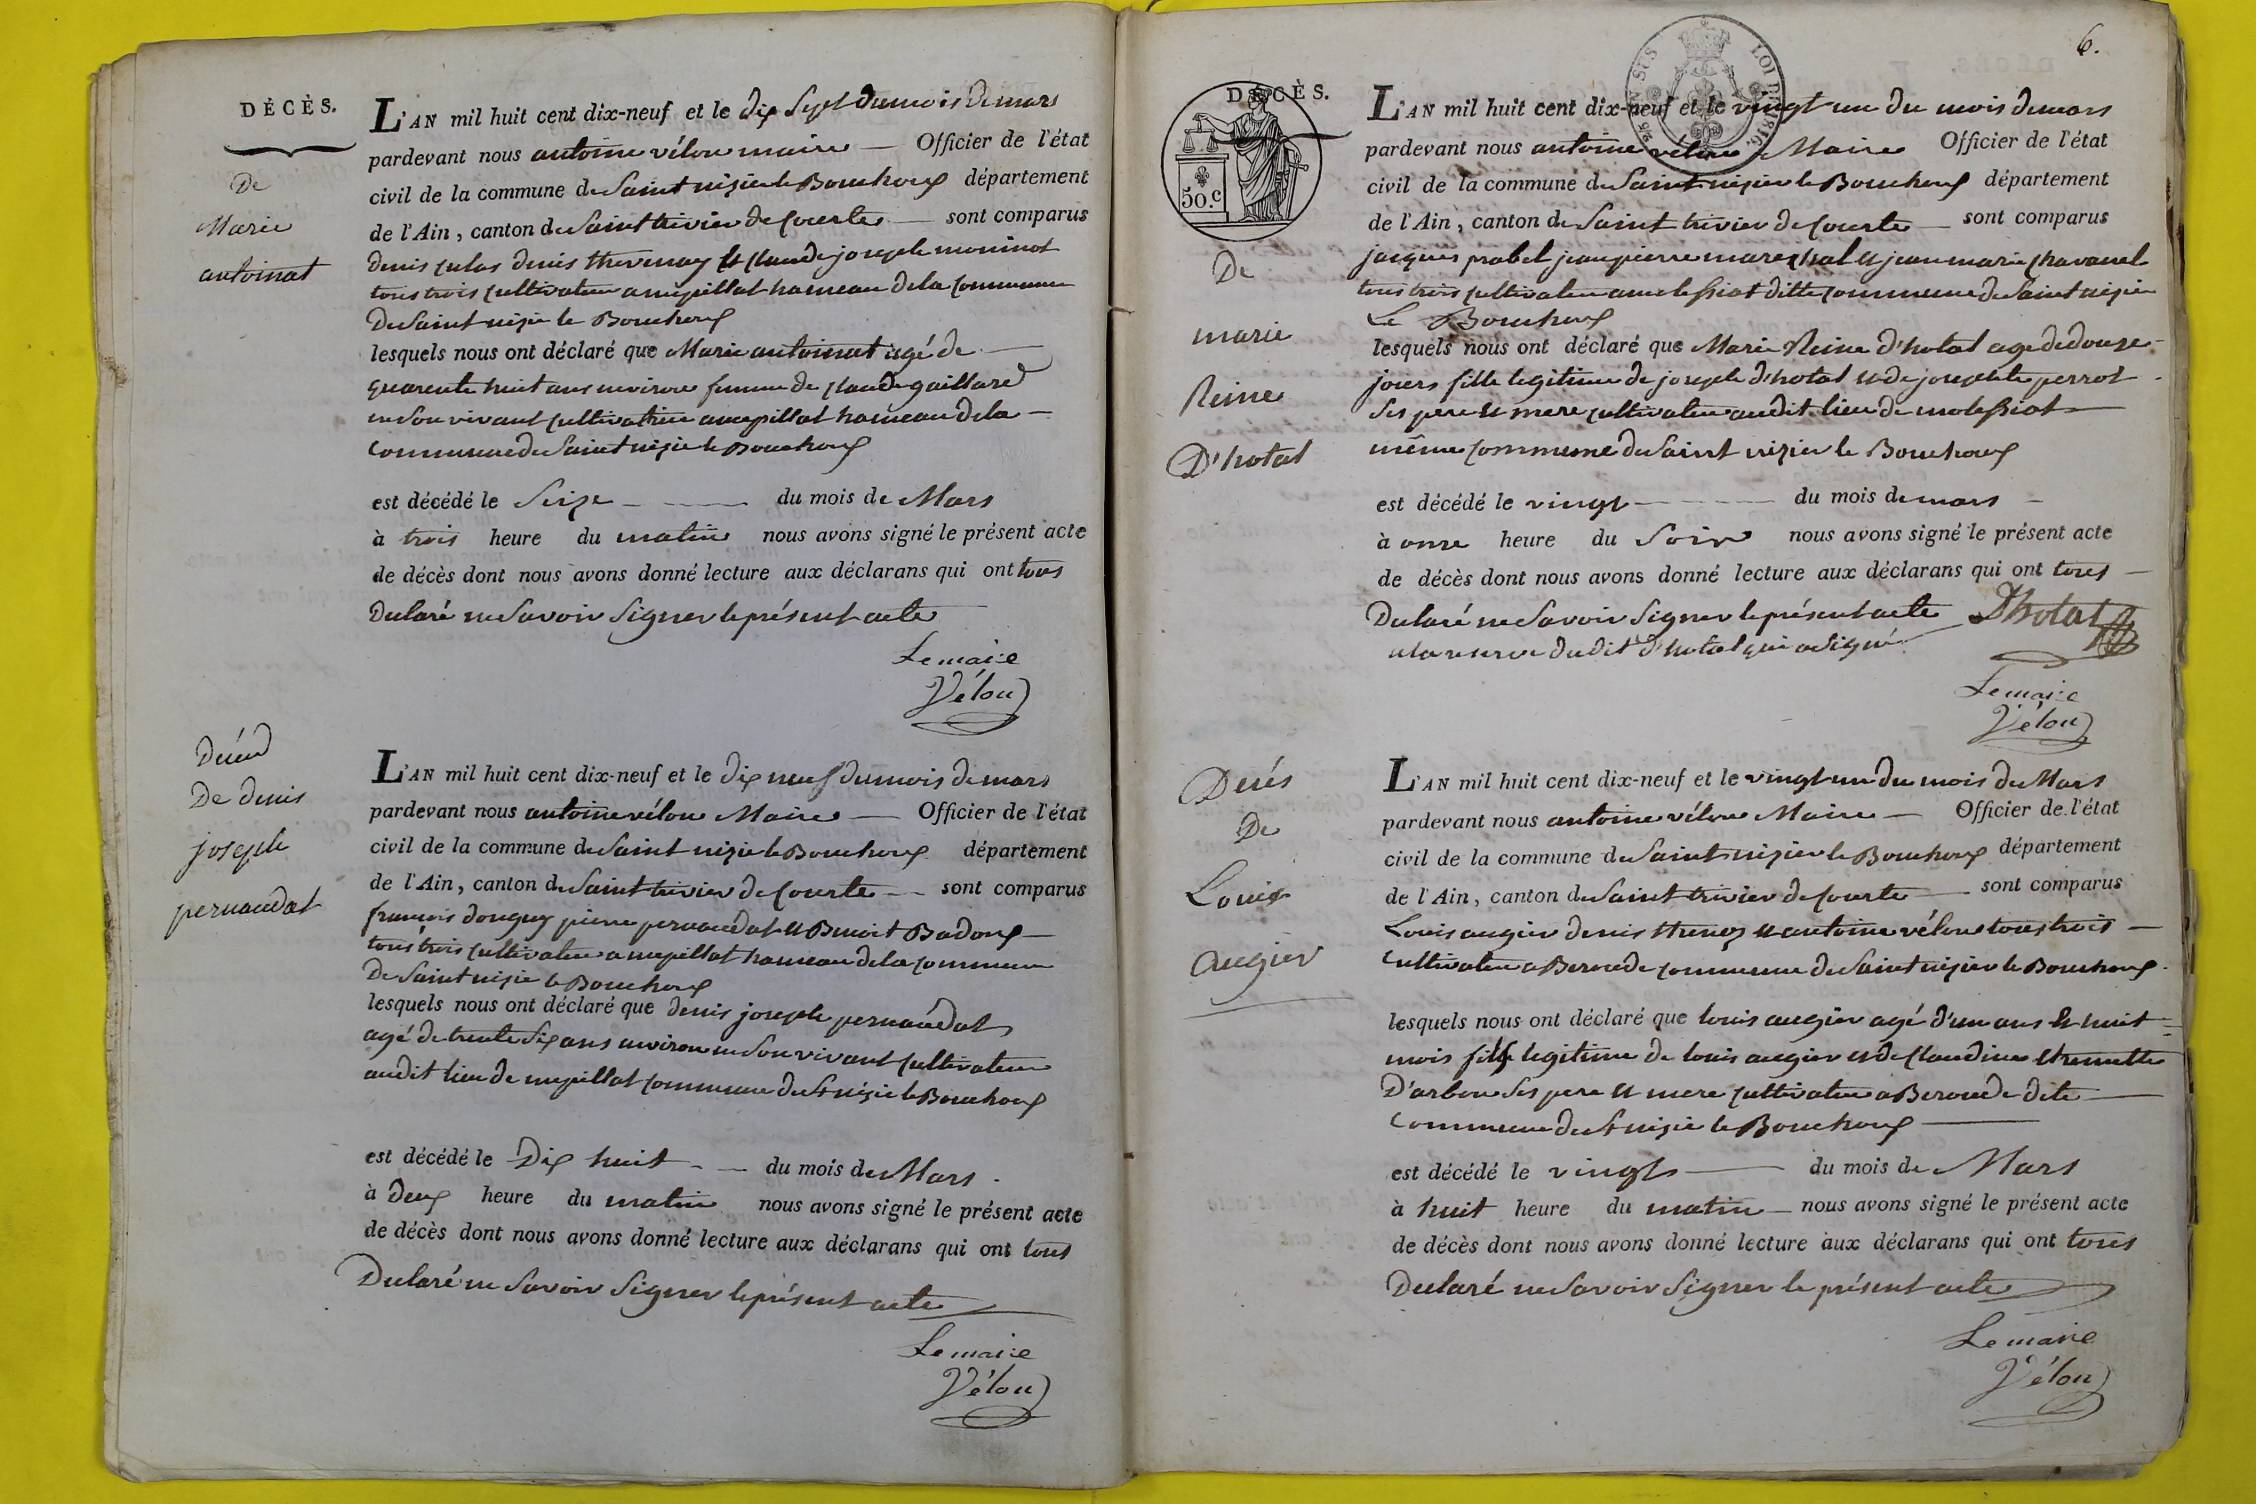 DÉCÈS.
De
Marie
antoinat
L'AN mil huit cent dix-neuf et le dix Sept du mois de mars
pardevant nous antoine vélon maire — Officier de l'état
civil de la commune de Saint nizie le Bouchoux département
de l'Ain, canton de Saint trivier de Courte — sont comparus
denis denis thevenay et claude joseph moninot
tous trois cultivateur a mepillat hameau de la commune
De Saint nizie le Bouchoux
lesquels nous ont déclaré que Marie antoinat agé de —
quarente huit ans environ femme de claude gaillard
en Son vivant cultivatrice a mepillat hameau de la —
Commune de Saint nizie le Bouchoux
est décédé le Seize — du mois de Mars
à trois heure du matin nous avons signé le présent acte
de décès dont nous avons donné lecture aux déclarans qui ont tous
Declaré ne Savoir Signer le présent acte
Le maire
Vélon
Décéd
De denis
joseph
pernaudat
L'AN mil huit cent dix-neuf et le dix neuf du mois de mars
pardevant nous antoine vélon Maire — Officier de l'état
civil de la commune de Saint nizie le Bouchoux département
de l'Ain, canton de Saint trivier de Courte — sont comparus
françois douguy pierre pernaudat et Benoit Badoux —
tous trois cultivateur a mepillat hameau de la commune
De Saint nizie le Bouchoux
lesquels nous ont déclaré que denis joseph pernaudat
agé de trente Six ans environ en Son vivant cultivateur
audit lieu de mepillat commune de St nizie le Bouchoux
est décédé le Dix huit — du mois de Mars .
à Deux heure du matin nous avons signé le présent acte
de décès dont nous avons donné lecture aux déclarans qui ont tous
Declaré ne Savoir Signer le présent acte
Le maire
Vélon
6.
DÉCÈS.
50.c
LOI DE 1816.
De
marie
Reine
D'hotal
L'AN mil huit cent dix-neuf et le vingt un du mois de mars
pardevant nous antoine vélon Maire Officier de l'état
civil de la commune de Saint nizier le Bouchoux département
de l'Ain, canton de Saint trivier de Courte — sont comparus
jacques prabel jean pierre marechal et jean marie chavanel
tous trois cultivateur a ditte commune de Saint nizier
Le Bouchoux
lesquels nous ont déclaré que Marie Reine d'hotal age de douze
jours fille legitime de joseph d'hotal et de josephte perrot
Ses pere et mere cultivateur audit lieu de molessiat —
même commune de Saint nizier le Bouchoux
est décédé le vingt — du mois de mars —
à onze heure du Soir nous avons signé le présent acte
de décès dont nous avons donné lecture aux déclarans qui ont tous —
Declaré ne Savoir Signer le présent acte Dhotal
a la reserve du dit D'hotal qui a Signé
Le maire
Vélon
Decés
De
Louis
augier
L'AN mil huit cent dix-neuf et le vingt un du mois de Mars
pardevant nous antoine vélon Maire — Officier de l'état
civil de la commune de Saint nizier le Bouchoux département
de l'Ain, canton de Saint trivier de Courte — sont comparus
Louis augier denis et antoine vélon tous trois —
cultivateur a Beroude commune de Saint nizier le Bouchoux
lesquels nous ont déclaré que louis augier agé d'un ans et huit
mois fils legitime de louis augier et de Claudine
D'arbon Ses pere et mere cultivateur a Beroude dite —
Commune de St nizie le Bouchoux —
est décédé le vingt — du mois de Mars
à huit heure du matin — nous avons signé le présent acte
de décès dont nous avons donné lecture aux déclarans qui ont tous
Declaré ne Savoir Signer le présent acte
Le maire
Vélon